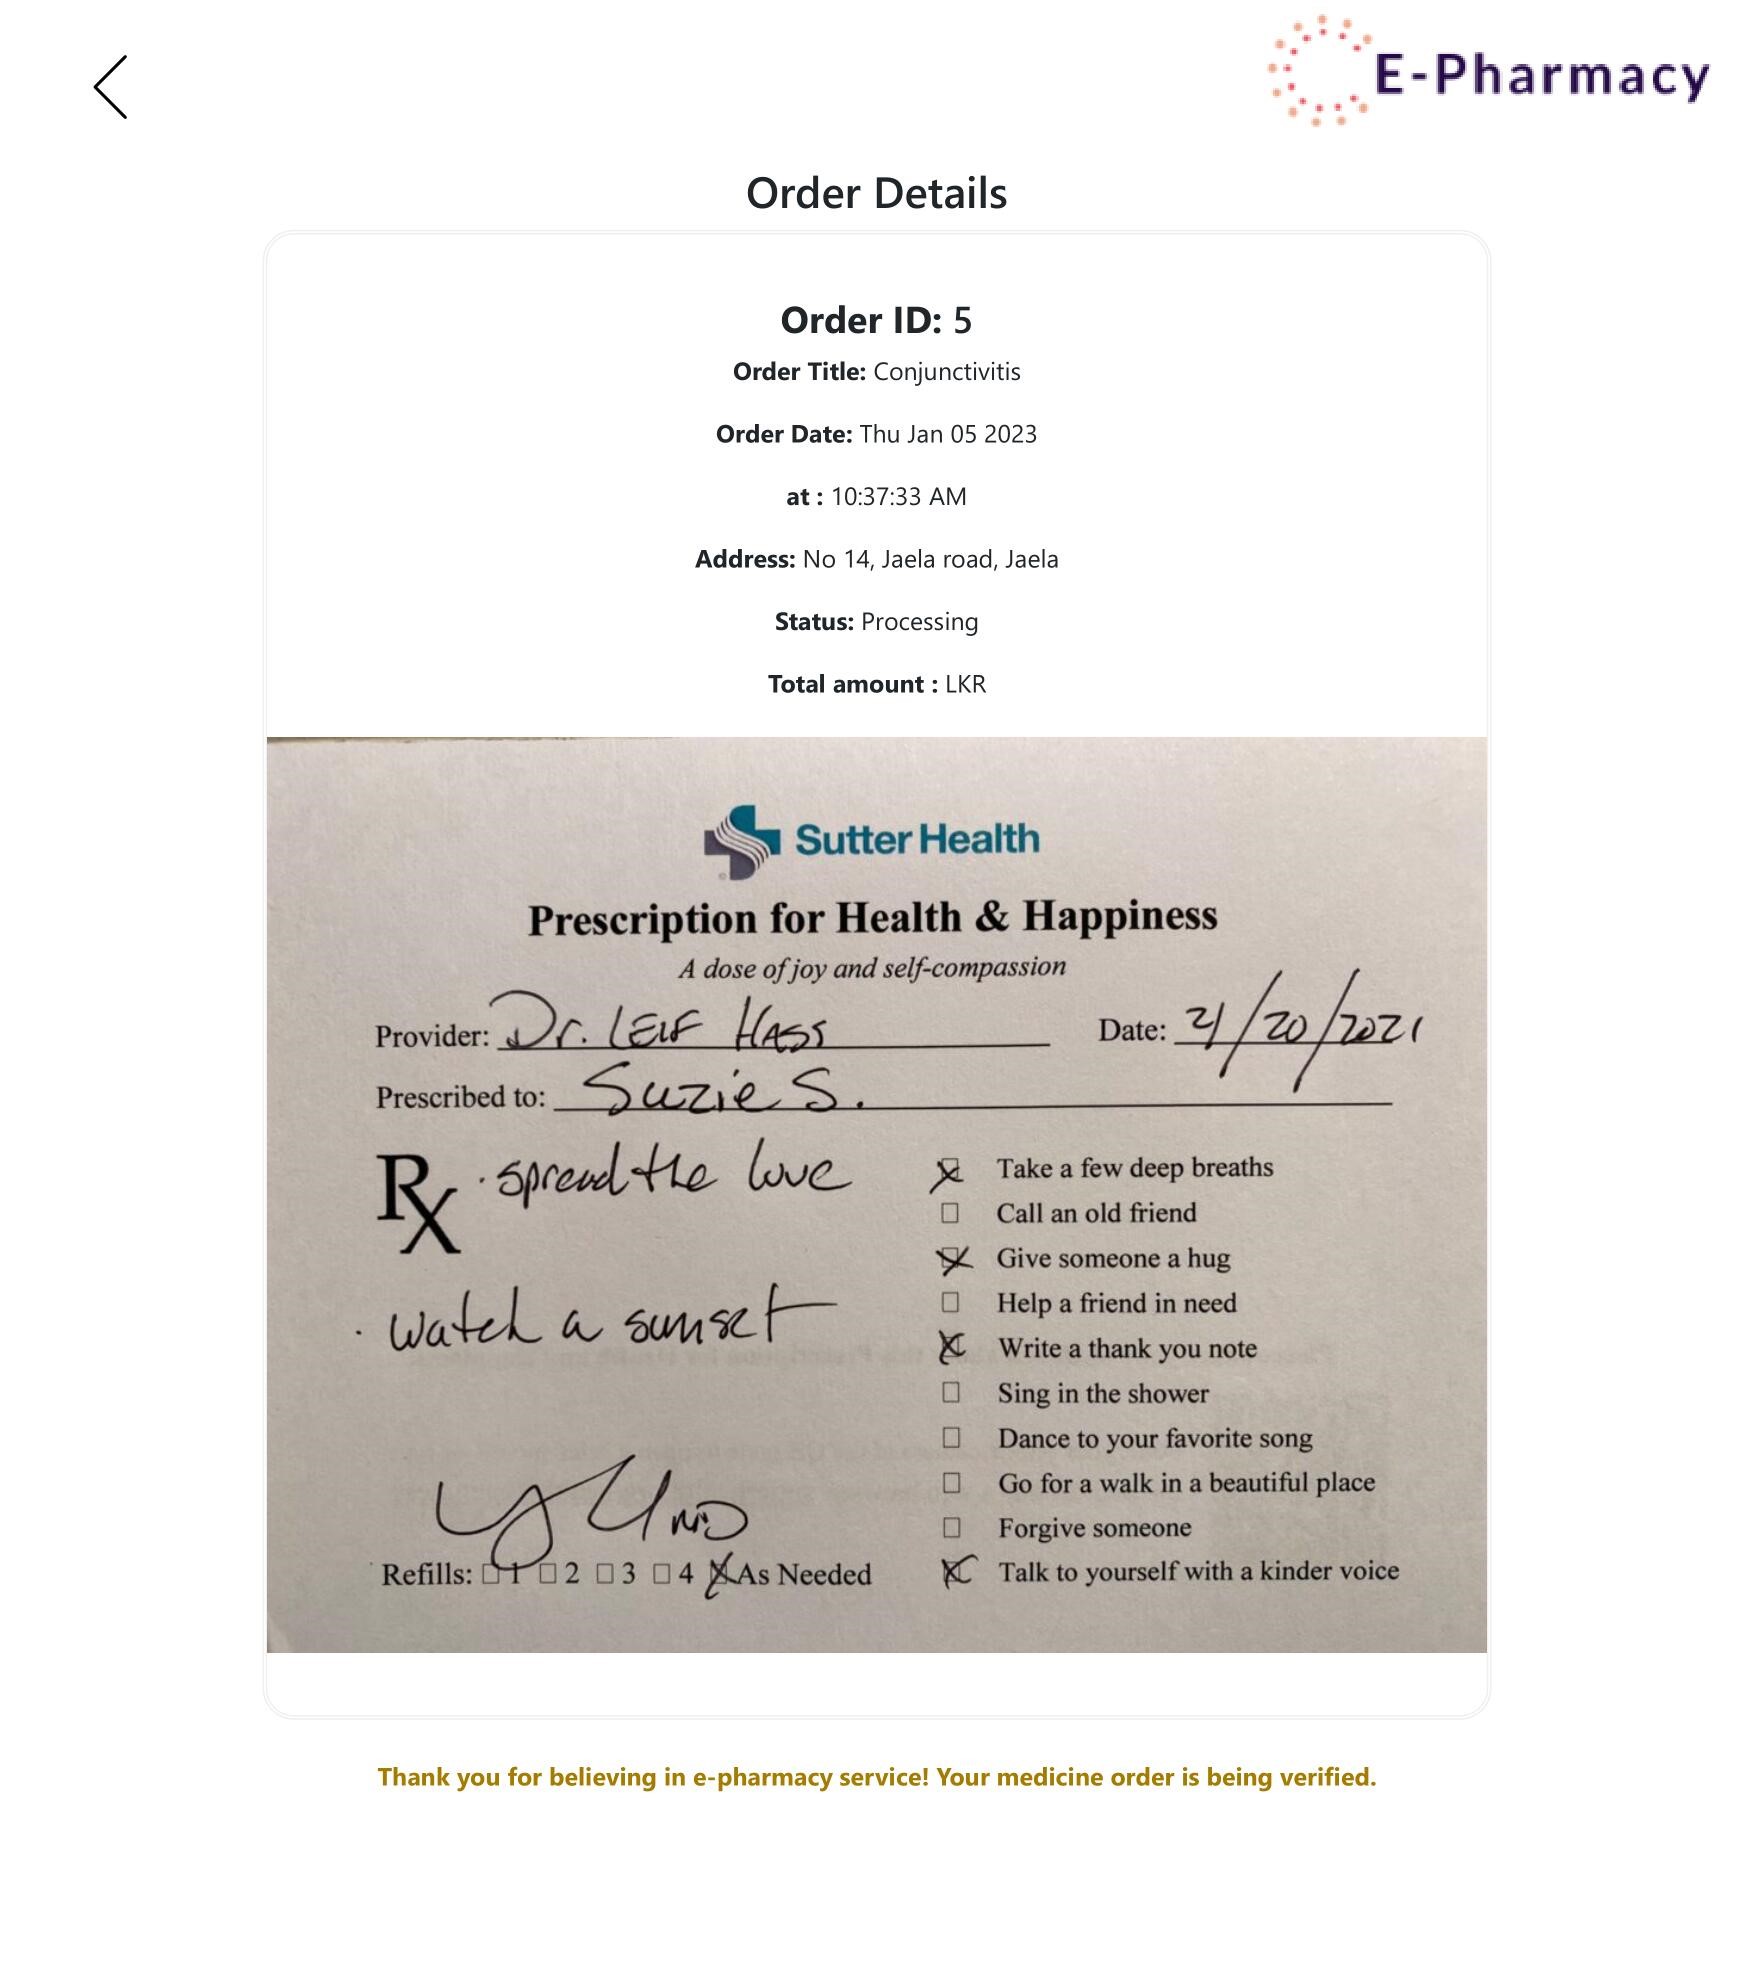 E-Pharmacy
Order Details
Order ID: 5
Order Title: Conjunctivitis
Order Date: Thu Jan 05 2023
at : 10:37:33 AM
Address: No 14, Jaela road, Jaela
Status: Processing
Total amount : LKR
Sutter Health
Prescription for Health & Happiness
A dose of joy and self-compassion
Provider: Dr. LEIF HASS Date: 21/20/2021
Prescribed to: Suzie S.
Rx · spread the love
· watch a sunset
Take a few deep breaths
Call an old friend
Give someone a hug
Help a friend in need
Write a thank you note
Sing in the shower
Dance to your favorite song
Go for a walk in a beautiful place
Forgive someone
Talk to yourself with a kinder voice
MD
Refills: 1 2 3 4 As Needed
Thank you for believing in e-pharmacy service! Your medicine order is being verified.